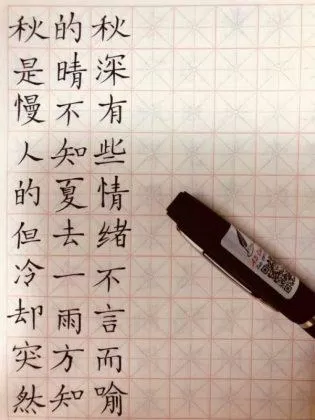 秋是慢人的但冷却突然
的晴不知夏去一雨方知
秋深有些情绪不言而喻